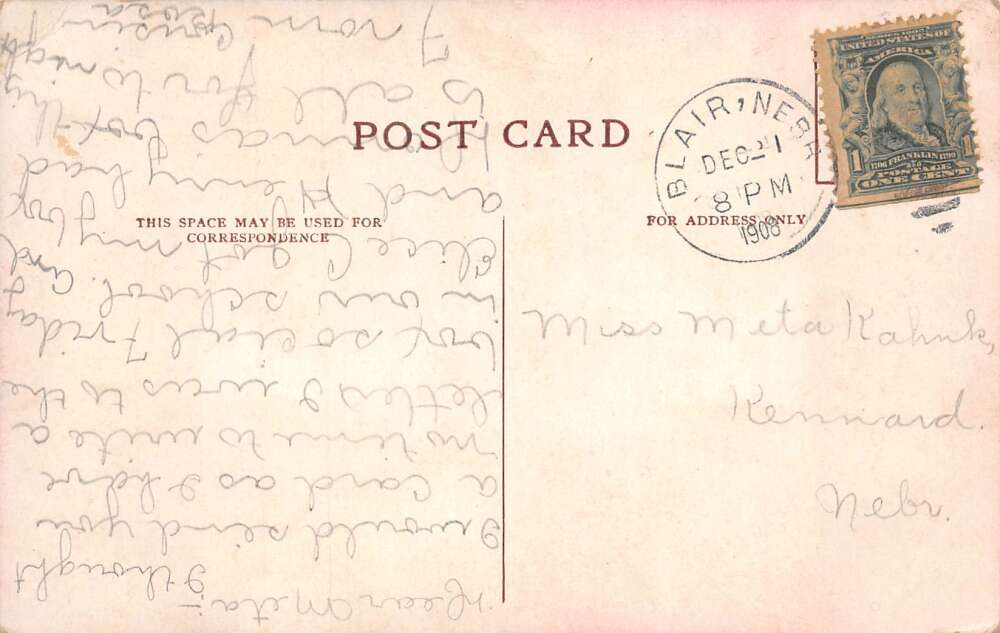 POST CARD
THIS SPACE MAY BE USED FOR
CORRESPONDENCE
FOR ADDRESS ONLY
BLAIR, NEBR
DEC 21
8 PM
1908
SERIES 1902
UNITED STATES OF
AMERICA
1 1
1706 FRANKLIN 1790
POSTAGE
ONE CENT
Miss Meta Kahnk,
Kennard.
Nebr.
Dear Meta:-
I thought
I would send you
a card as I have
no time to write a
letter I was to the
box social Friday
in our school. and
Elsie C got my box
and Henry had
box this
is all for to night
From Cousin
Rosa